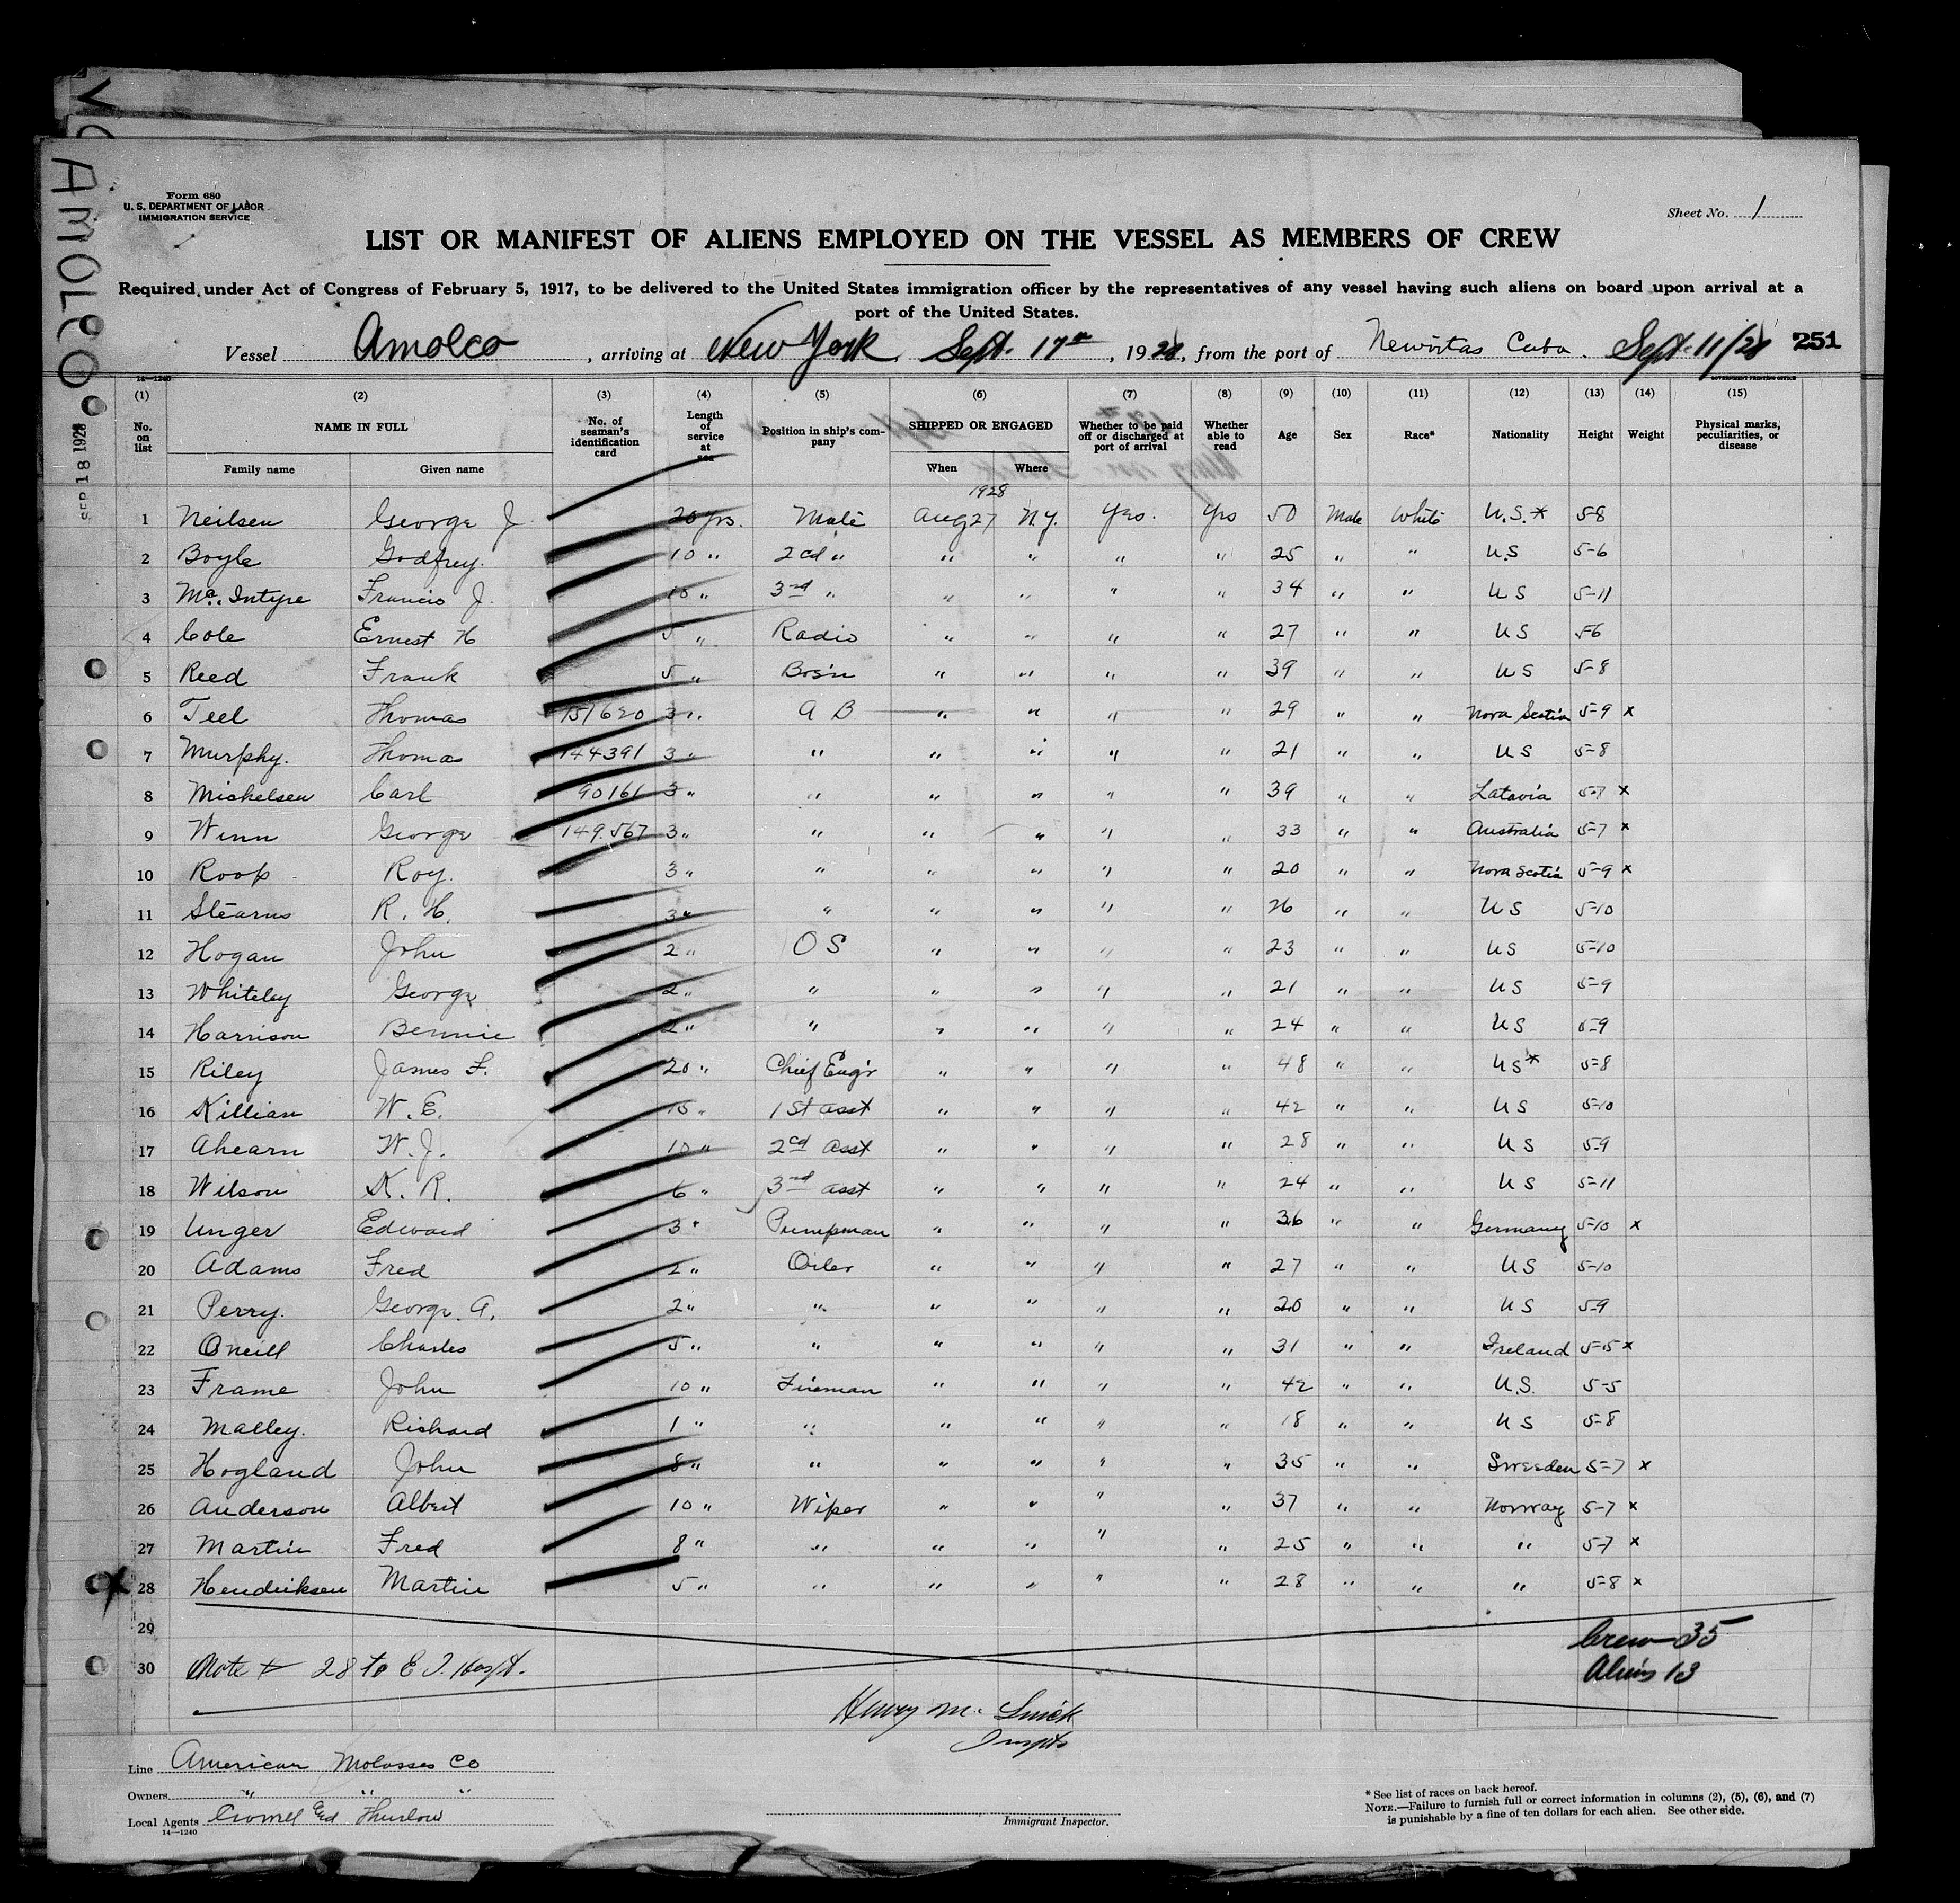 AMOLCO
SEP 18 1928
Form 680
U. S. DEPARTMENT OF LABOR
IMMIGRATION SERVICE
Sheet No. 1
LIST OR MANIFEST OF ALIENS EMPLOYED ON THE VESSEL AS MEMBERS OF CREW
Required under Act of Congress of February 5, 1917, to be delivered to the United States immigration officer by the representatives of any vessel having such aliens on board upon arrival at a
port of the United States.
Vessel Amolco, arriving at New York Sept. 17th, 1928, from the port of Newvitas Cuba. Sept. 11/28 251
14—1240 GOVERNMENT PRINTING OFFICE
(1) (2) (3) (4) (5) (6) (7) (8) (9) (10) (11) (12) (13) (14) (15)
No. on list NAME IN FULL No. of seaman's identification card Length of service at sea Position in ship's company SHIPPED OR ENGAGED Whether to be paid off or discharged at port of arrival Whether able to read Age Sex Race* Nationality Height Weight Physical marks, peculiarities, or disease
Family name Given name When Where
1928
1 Neilsen George J. 20 yrs. Mate Aug 27 N.Y. Yes. Yes 50 Male White U.S.* 5-8
2 Boyle Godfrey. 10 " 2cd " " " " " 25 " " U.S 5-6
3 Mc. Intyre Francis J. 15 " 3rd " " " " " 34 " " U S 5-11
4 Cole Ernest H 5 " Radio " " " " 27 " " U S 5-6
5 Reed Frank 5 " Bos'n " " " " 39 " " U S 5-8
6 Teel Thomas 151620 3 " A B " " " " 29 " " Nova Scotia 5-9 x
7 Murphy. Thomas 144391 3 " " " " " " 21 " " U S 5-8
8 Mickelsen Carl 90161 3 " " " " " " 39 " " Latavia 5-7 x
9 Winn George 149567 3 " " " " " " 33 " " Australia 5-7 x
10 Roop Roy. 3 " " " " " " 20 " " Nova Scotia 5-9 x
11 Stearns R. H. 3 " " " " " " 26 " " U S 5-10
12 Hogan John 2 " O S " " " " 23 " " U S 5-10
13 Whiteley George 2 " " " " " " 21 " " U S 5-9
14 Harrison Bennie 2 " " " " " " 24 " " U S 5-9
15 Riley James F. 20 " Chief Eng'r " " " " 48 " " U S* 5-8
16 Killian W. E. 15 " 1st asst " " " " 42 " " U S 5-10
17 Ahearn W. J. 10 " 2cd asst " " " " 28 " " U S 5-9
18 Wilson K. R. 6 " 3rd asst " " " " 24 " " U S 5-11
19 Unger Edward 3 " Pumpman " " " " 36 " " Germany 5-10 x
20 Adams Fred 2 " Oiler " " " " 27 " " U S 5-10
21 Perry. George. A. 2 " " " " " " 20 " " U S 5-9
22 Oneill Charles 5 " " " " " " 31 " " Ireland 5-5 x
23 Frame John 10 " Fireman " " " " 42 " " U.S. 5-5
24 Malley. Richard 1 " " " " " " 18 " " U S 5-8
25 Hogland John 8 " " " " " " 35 " " Sweeden 5-7 x
26 Anderson Albert 10 " Wiper " " " " 37 " " Norway 5-7 x
27 Martin Fred 8 " " " " " " 25 " " " 5-7 x
x 28 Hendriksen Martin 5 " " " " " " 28 " " " 5-8 x
29
Crew 35
30 Note # 28 to E.I. Hospt.
Aliens 13
Henry M.
Inspts
Line American Molasses Co
Owners " " "
Local Agents Thurlow
14—1240
Immigrant Inspector.
* See list of races on back hereof.
NOTE.—Failure to furnish full or correct information in columns (2), (5), (6), and (7)
is punishable by a fine of ten dollars for each alien. See other side.